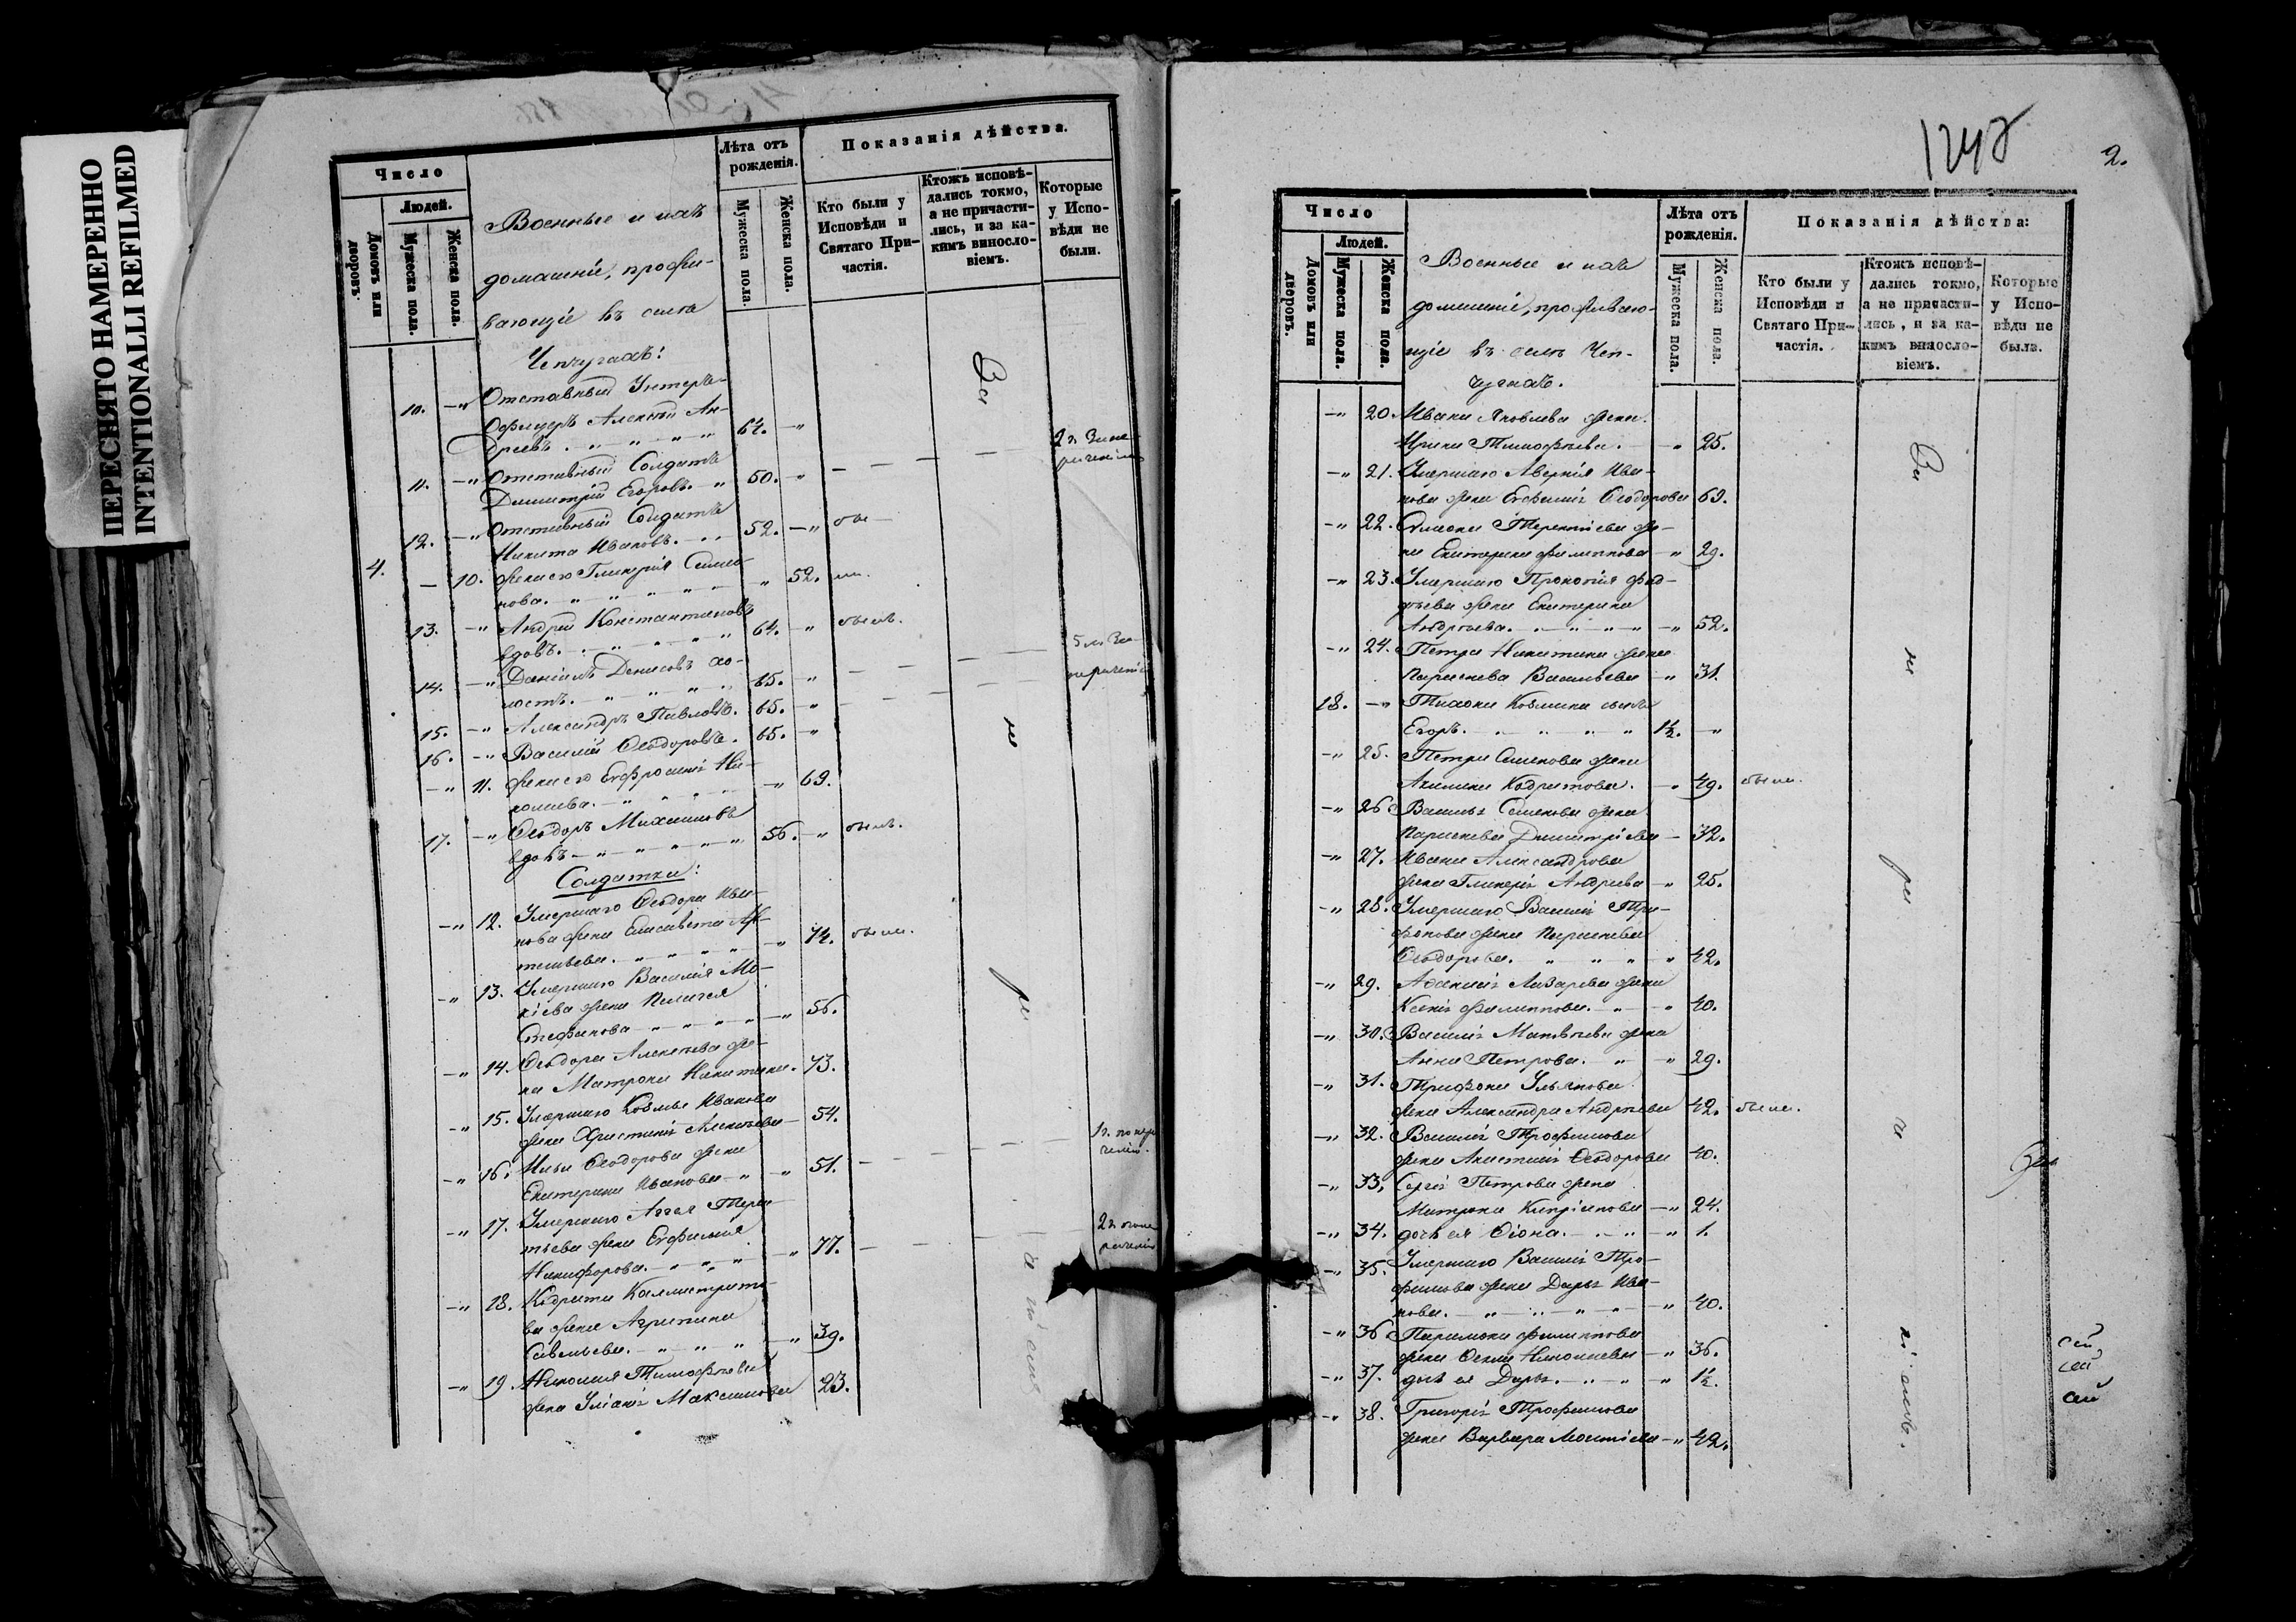 ПЕРЕСНЯТО НАМЕРЕННО
INTENTIONALLI REFILMED
Число
Людей.
Домовъ или дворовъ.
Мужеска пола.
Женска пола.
Военные и ихъ
домашніе, прожи-
вающіе въ селѣ
Чепчугахъ:
Лѣта отъ
рожденія.
Мужеска пола.
Женска пола.
Показанія дѣйства.
Кто были у
Исповѣди и
Святаго При-
частія.
Ктожъ исповѣ-
дались токмо,
а не причасти-
лись, и за ка-
кимъ винословіемъ.
Которые
у Испо-
вѣди не
были.
10. —" Отставный Унтеръ-
Офицеръ Алексѣй Ан-
дреевъ. 64. —"
11. —" Отставный Солдатъ
Димитрій Егоровъ. —" 50. —"
12. —" Отставный Солдатъ
Никита Ивановъ. 52. —"
4. — 10. жена его Гликерія Симео-
нова. " 52.
13. —" Андрей Константиновъ
вдовъ. 64. —" былъ.
14. —" Даніилъ Денисовъ хо-
лостъ. 65. —"
15. —" Александръ Павловъ. 65. —"
16. —" Василій Ѳеодоровъ. 65. —"
—" 11. жена его Евфросинія Ни-
колаева. —" 69.
17. —" Ѳеодоръ Михаиловъ
вдовъ 56. —" былъ.
Солдатки:
—" 12. Умершаго Ѳеодора Ива-
нова жена Елисавета Ар-
темьева. —" 74. была.
—" 13. Умершаго Василія Мо-
кіева жена Пелагея
Стефанова —" 56.
—" 14. Ѳеодора Алексѣева же-
на Матрона Никитина. 73.
—" 15. Умершаго Козьмы Иванова
жена Христинія Алексѣева 54.
—" 16. Ильи Ѳеодорова жена
Екатерина Иванова —" 51.
—" 17. Умершаго Аггея Терен-
тьева жена Евфимія
Никифорова. —" 77.
—" 18. Кодрата Каллистрато-
ва жена Агрипина
Савельева. —" 39.
—" 19. Николая Тимофѣева
жена Уліанія Максимова 23.
2.
Число
Людей.
Домовъ или дворовъ.
Мужеска пола.
Женска пола.
Военные и ихъ
домашніе, прожываю-
щіе въ селѣ Чеп-
чугахъ.
Лѣта отъ
рожденія.
Мужеска пола.
Женска пола.
Показанія дѣйства:
Кто были у
Исповѣди и
Святаго При-
частія.
Ктожъ исповѣ-
дались токмо,
а не причасти-
лись, и за ка-
кимъ винословіемъ.
Которые
у Испо-
вѣди не
были.
—" 20. Ивана Яковлева жена
Ирина Тимофѣева. —" 25.
—" 21. Умершаго Аверкія Ива-
нова жена Евфимія Ѳеодорова 69.
—" 22. Симона Терентіева же-
на Екатерина Филиппова —" 29.
—" 23. Умершаго Прокопія Фад-
дѣева жена Екатерина
Андрѣева. —" 52.
—" 24. Петра Никитина жена
Параскева Васильева —" 31.
18. —" Тихона Козьмина сынъ
Егоръ. 1½. —"
—" 25. Петра Семенова жена
Акилина Кодратова. —" 49. была.
—" 26 Василья Семенова жена
Параскева Димитріева — 32.
—" 27. Ивана Александрова
жена Гликерія Андреева —" 25.
—" 28. Умершаго Василія Три-
фонова жена Параскева
Ѳеодорова. " 42.
—" 29. Аѳанасія Лазарева жена
Ксенія Филиппова. —" 40.
—" 30. Василія Матвѣева жена
Анна Петрова. —" 29.
—" 31. Трифона Ульянова
жена Александра Андрѣева 42. была.
—" 32. Василія Трофимова
жена Анастасія Ѳеодорова 40.
—" 33. Сергія Петрова жена
Матрона Кипріанова —" 24.
—" 34. дочь ея Ѳіона. —" 1.
—" 35. Умершаго Василія Тро-
фимова жена Дарья Ива-
нова. —" 40.
—" 36 Парамона Филиппова
жена Ѳекла Николаева —" 36.
—" 37. дочь ея Дарья. —" 1½.
—" 38. Григорія Трофимова
жена Варвара —" 42.